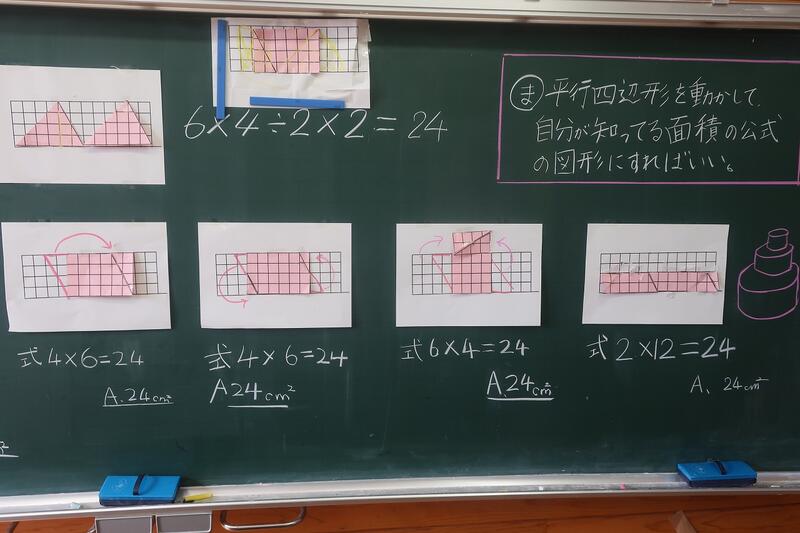 6×4÷2×2=24
ま 平行四辺形を動かして、
自分が知ってる面積の公式
の図形にすればいい。
式4×6=24
A.24cm²
式4×6=24
A24cm²
式6×4=24
A.24cm²
式2×12=24
A、24cm²